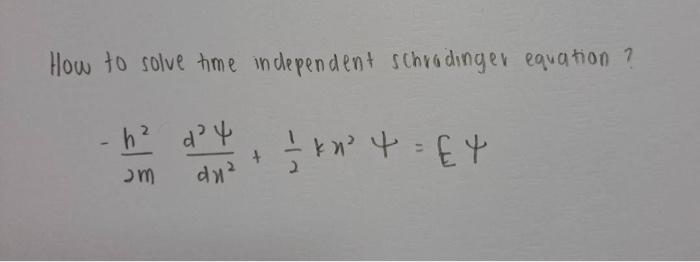 How to solve time independent schrodinger equation ?
- h² / 2m d²ψ / dx² + 1 / 2 kx² ψ = Eψ